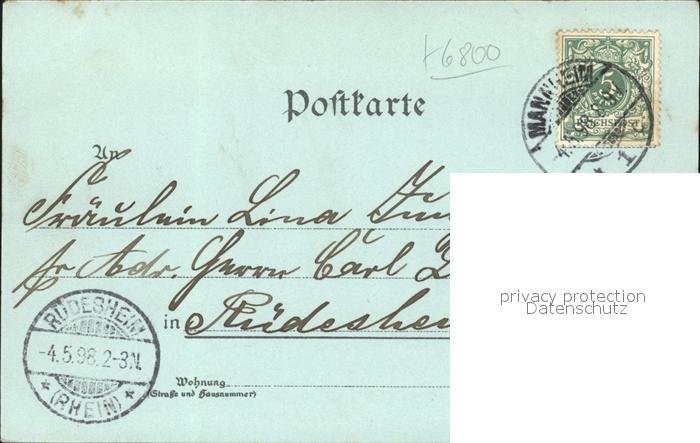 +6800
Postkarte
REICHSPOST
MANNHEIM
1
An
Fräulein Lina
pr Adr. Herrn Carl
in Rüdeshei
RÜDESHEIM
-4.5.98.2-3N.
* (RHEIN) *
Wohnung
(Straße und Hausnummer)
privacy protection
Datenschutz